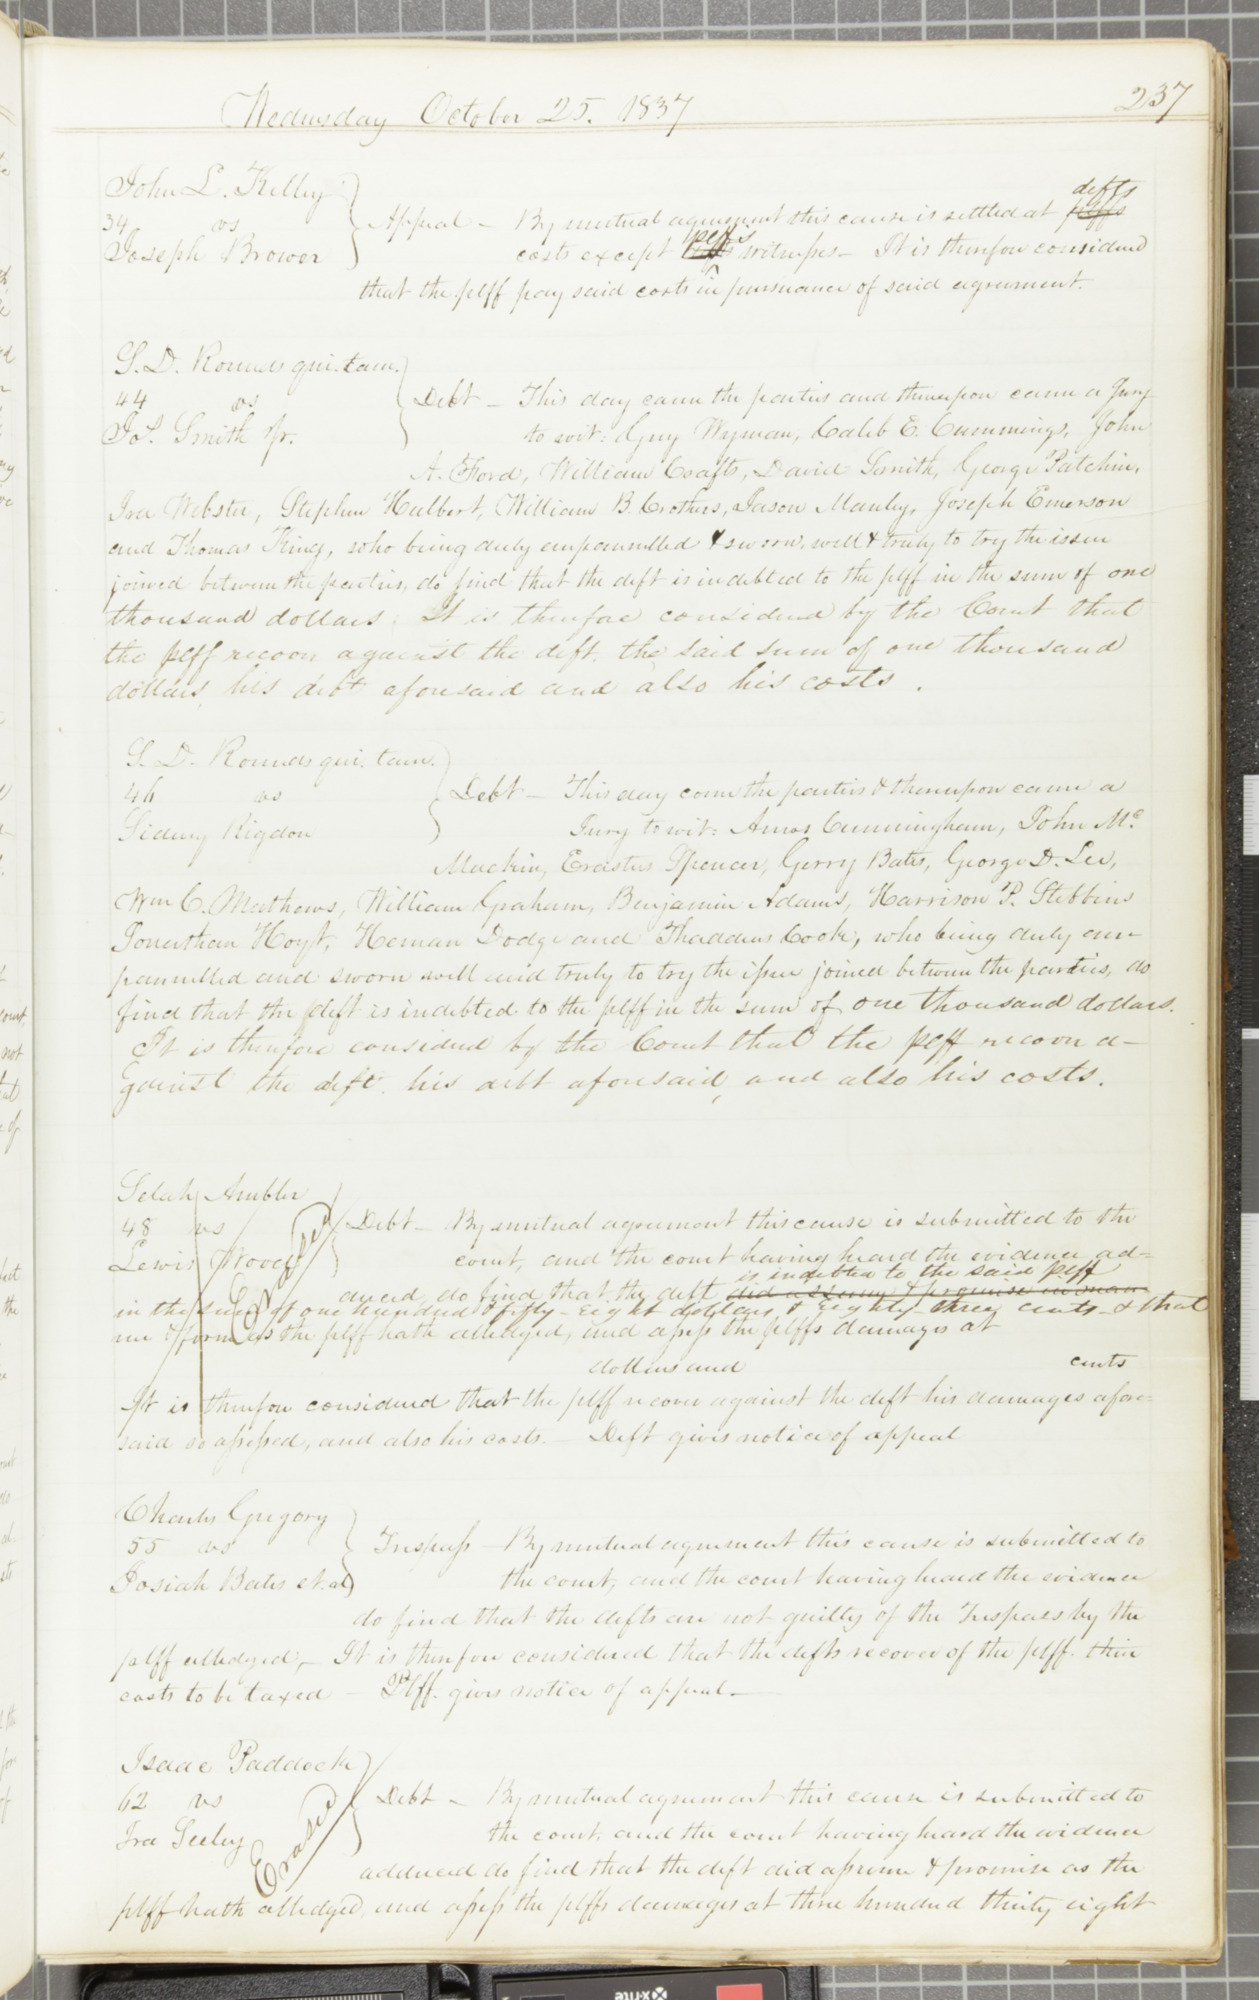 Wednesday October 25. 1837
237
John L. Kelley
34 vs
Joseph Brower
Appeal – By mutual agreement this cause is settled at plffs defts
costs except plffs witnesses – It is therefore considered
that the plff pay said costs in pursuance of said agreement.
S. D. Rounds qui. tam.
44 vs
Jos. Smith Jr.
Debt – This day came the parties and thereupon came a Jury
to wit: Guy Wyman, Caleb E. Cummings, John
A. Ford, William Crafts, David Smith, George Patchin,
Ira Webster, Stephen Hulbert, William B. Crothers, Jason Manley, Joseph Emerson
and Thomas King, who being duly empannelled & sworn, well & truly to try the issue
joined between the parties, do find that the deft is indebted to the plff in the sum of one
thousand dollars. It is therefore considered by the Court that
the plff recover against the deft. the said sum of one thousand
dollars, his debt aforesaid and also his costs.
S. D. Rounds qui. tam.
46 vs
Sidney Rigdon
Debt – This day come the parties & thereupon came a
Jury to wit: Amos Cunningham, John Mc
Mackin, Erastus Spencer, Gerry Bates, George D. Lee,
Wm C. Mathews, William Graham, Benjamin Adams, Harrison P. Stebbins
Jonathan Hoyt, Heman Dodge and Thaddeus Cook, who being duly em-
pannelled and sworn well and truly to try the issue joined between the parties, do
find that the deft is indebted to the plff in the sum of one thousand dollars.
It is therefore considered by the Court that the plff recover a-
gainst the deft. his debt aforesaid, and also his costs.
Selah Ambler
48 vs
Lewis Wood
Erased
Debt – By mutual agreement this cause is submitted to the
court, and the court having heard the evidence ad=
is indebted to the said plff
duced do find that the deft did assume & promise in man
in the sum of one hundred & fifty-eight dollars & eighty three cents – & that
ner & form as the plff hath alledged, and assess the plffs damages at
dollars and cents
It is therefore considered that the plff recover against the deft his damages afore=
said so assessed, and also his costs. – Deft gives notice of appeal
Charles Gregory
55 vs
Josiah Bates et. al
Trespass – By mutual agreement this cause is submitted to
the court, and the court having heard the evidence
do find that the defts are not guilty of the Trespass by the
plff alledged, – It is therefore considered that the defts recover of the plff. their
costs to be taxed – Plff. gives notice of appeal –
Isaac Paddock
62 vs
Ira Seeley
Erased
Debt – By mutual agreement this cause is submitted to
the court, and the court having heard the evidence
adduced do find that the deft did assume & promise as the
plff hath alledged, and assess the plffs damages at three hundred thirty eight
x-rite